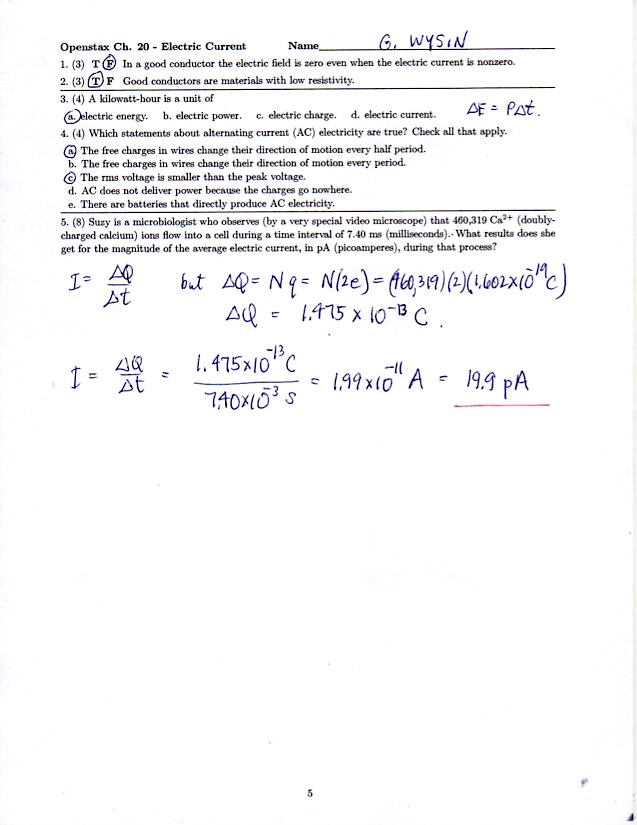 Openstax Ch. 20 - Electric Current Name G. WYSIN
1. (3) T F In a good conductor the electric field is zero even when the electric current is nonzero.
2. (3) T F Good conductors are materials with low resistivity.
3. (4) A kilowatt-hour is a unit of
a. electric energy. b. electric power. c. electric charge. d. electric current. ΔE = PΔt.
4. (4) Which statements about alternating current (AC) electricity are true? Check all that apply.
a. The free charges in wires change their direction of motion every half period.
b. The free charges in wires change their direction of motion every period.
c. The rms voltage is smaller than the peak voltage.
d. AC does not deliver power because the charges go nowhere.
e. There are batteries that directly produce AC electricity.
5. (8) Suzy is a microbiologist who observes (by a very special video microscope) that 460,319 Ca²⁺ (doubly-
charged calcium) ions flow into a cell during a time interval of 7.40 ms (milliseconds). What results does she
get for the magnitude of the average electric current, in pA (picoamperes), during that process?
I = ΔQ/Δt but ΔQ = Nq = N(2e) = (460,319)(2)(1.602×10⁻¹⁹C)
ΔQ = 1.475 × 10⁻¹³ C.
I = ΔQ/Δt = 1.475×10⁻¹³ C / 7.40×10⁻³ s = 1.99×10⁻¹¹ A = 19.9 pA
5